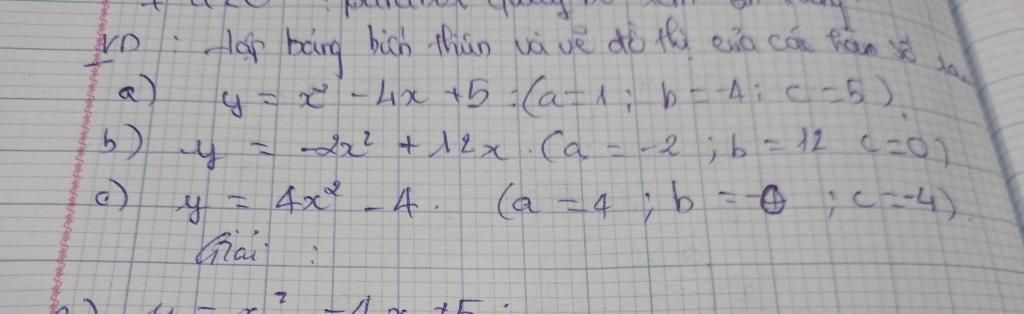 VD : Lập bảng biến thiên và vẽ đồ thị của các hàm số sau
a) y = x² - 4x + 5 : (a = 1 ; b = -4 ; c = 5)
b) y = -2x² + 12x . (a = -2 ; b = 12 c = 0)
c) y = 4x² - 4 . (a = 4 ; b = 0 ; c = -4)
Giải :
a) y = x² - 4x + 5 :